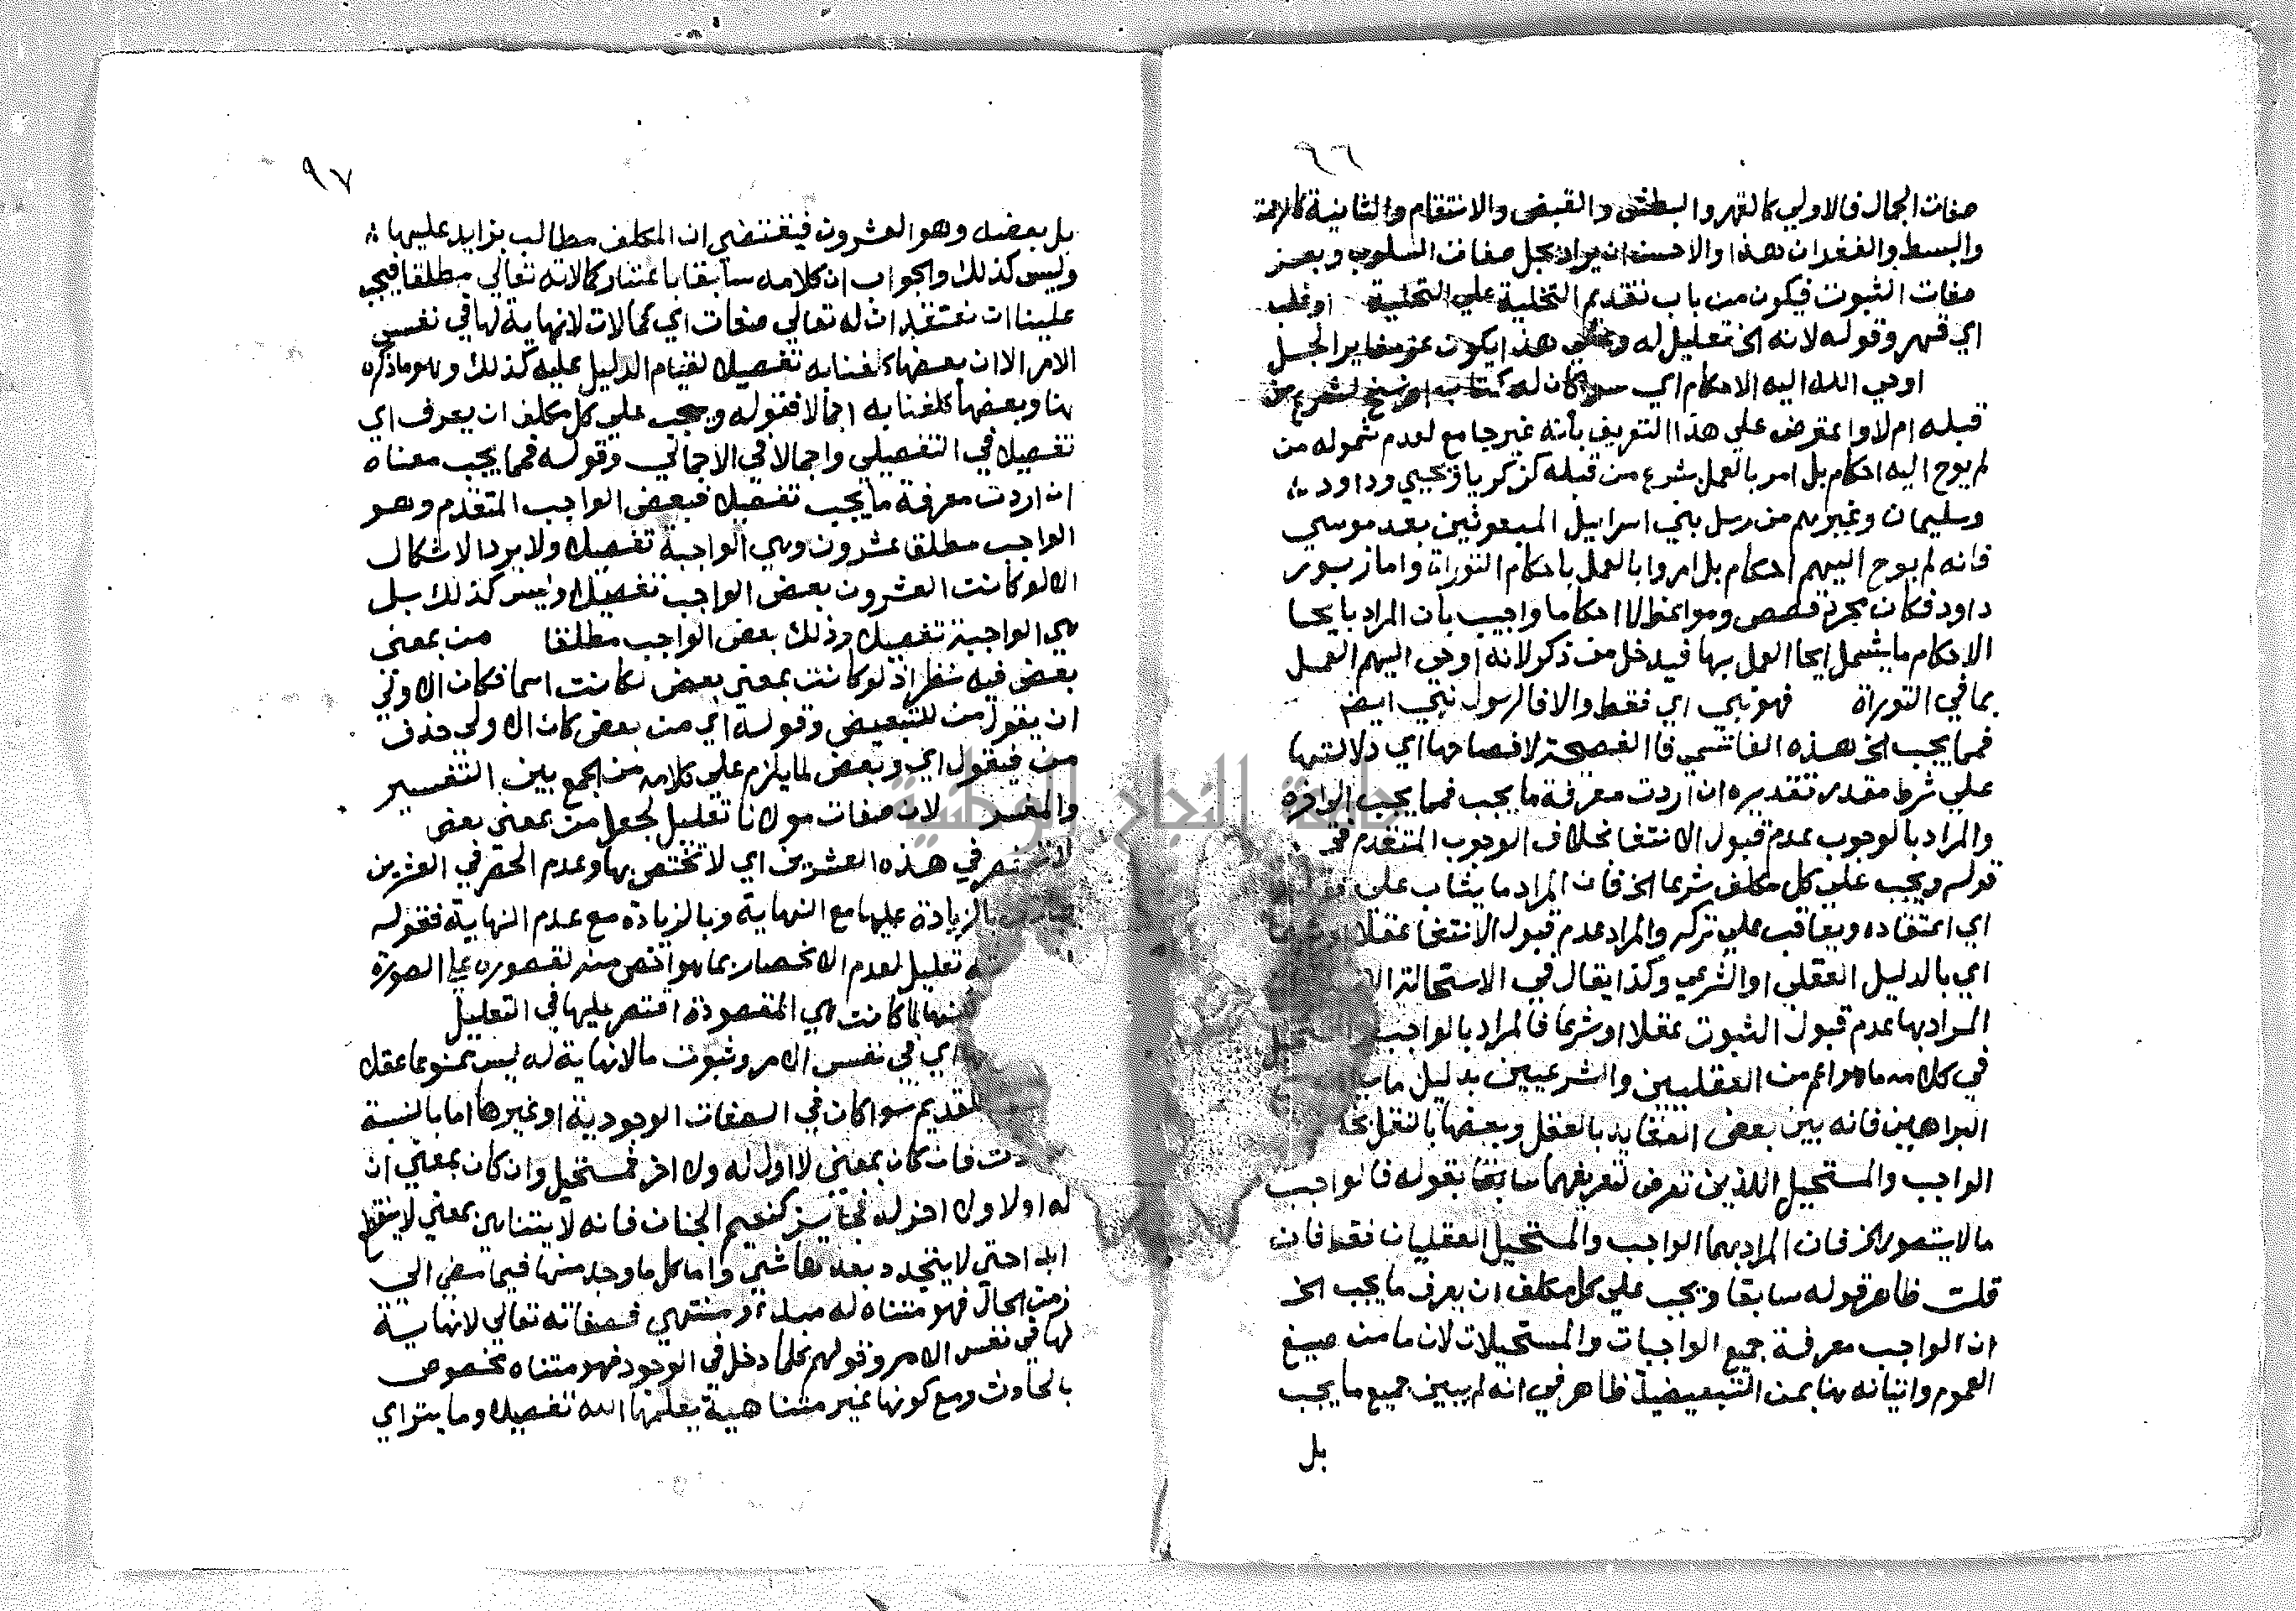 ٩٦
صفات الجمال فالاولي كالقهر والبطش والقبض والانتقام والثانية كالرحمة
والبسط والغفران هذا والاحسن ان يراد بجل صفات السلوب وبعز
صفات الثبوت فيكون من باب تقديم التخلية علي التحلية
اي قهر وقوله لانه الخ تعليل له وعلي هذا يكون عز مغاير الجل
اوحي الله اليه الاحكام اي سوا كان له كتاب او نسخ لشرع من
قبله ام لا واعترض علي هذا التعريف بأنه غير جامع لعدم شموله من
لم يوح اليه احكام بل امر بالعمل بشرع من قبله كزكريا ويحيي وداود
وسليمان وغيرهم من رسل بني اسراييل المبعوثين بعد موسي
فانه لم يوح اليهم احكام بل امروا بالعمل باحكام التوراة واما زبور
داود فكان مجرد قصص ومواعظ لا احكاما واجيب بأن المراد بايحا
الاحكام ما يشمل ايحا العمل بها فيدخل من ذكر لانه اوحي اليهم العمل
بما في التوراة فهو نبي اي فقط والا فالرسول نبي ايضا
فمما يجب الخ هذه الفا تسمي فا الفصيحة لافصاحها اي دلالتها
علي شرط مقدر تقديره ان اردت معرفة ما يجب فمما يجب الي اخره
والمراد بالوجوب عدم قبول الانتفا بخلاف الوجوب المتقدم في
قوله ويجب علي كل مكلف شرعا الخ فان المراد ما يثاب علي
اي اعتقاده ويعاقب علي تركه والمراد عدم قبول الانتفا عقلا او
اي بالدليل العقلي او الشرعي وكذا يقال في الاستحالة
المراد بها عدم قبول الثبوت عقلا او شرعا فالمراد بالواجب
في كلامه ما هو اعم من العقليين والشرعيين بدليل
البراهين فانه بين بعض العقايد بالعقل وبعضها بالنقل
الواجب والمستحيل اللذين تعرض لتعريفهما سابقا بقوله فالواجب
ما لا يتصور الخ فان المراد بهما الواجب والمستحيل العقليان فقط فان
قلت ظاهر قوله سابقا ويجب علي كل مكلف ان يعرف ما يجب الخ
ان الواجب معرفة جميع الواجبات والمستحيلات لان ما من صيغ
العموم واتيانه هنا بمن التبعيضية ظاهر في انه لم يبين جميع ما يجب
بل
٩٧
بل بعضه وهو العشرون فيقتضي ان المكلف مطالب بزايد عليها
وليس كذلك والجواب ان كلامه سابقا باعتبار كمالاته تعالي مطلقا فيجب
علينا ان نعتقد ان له تعالي صفات اي كمالات لا نهاية لها في نفس
الامر الا ان بعضها كلفنا به تفصيلا لقيام الدليل عليه كذلك وهو ما ذكره
هنا وبعضها كلفنا به اجمالا فقوله ويجب علي كل مكلف ان يعرف اي
تفصيلا في التفصيلي واجمالا في الاجمالي وقوله فمما يجب معناه
ان اردت معرفة ما يجب تفصيلا فبعض الواجب المتقدم وهو
الواجب مطلقا عشرون وهي الواجبة تفصيلا ولا يرد الاشكال
الا لو كانت العشرون بعض الواجب تفصيلا وليس كذلك بل
هي الواجبة تفصيلا وذلك بعض الواجب مطلقا من بمعني
بعض فيه نظر اذ لو كانت بمعني بعض لكانت اسما فكان الاولي
ان يقول من للتبعيض وقوله اي من بعض كان الاولي حذف
من فيقول اي وبعض لما يلزم علي كلامه من الجمع بين التفسير
والمفسر لان صفات مولانا تعليل لجعل من بمعني بعض
لا تنحصر في هذه العشرين اي لا تختص بها وعدم الحصر في العشرين
بالزيادة عليها مع النهاية وبالزيادة مع عدم النهاية فقوله
تعليل لعدم الانحصار بما هو اخص منه لقصوره علي الصورة
لما كانت هي المقصودة اقتصر عليها في التعليل
اي في نفس الامر وثبوت ما لا نهاية له ليس ممنوعا عقلا
القديم سوا كان في الصفات الوجودية او غيرها اما بالنسبة
فان كان بمعني لا اول له ولا اخر فمستحيل وان كان بمعني ان
له اولا ولا اخر له فجايز كنعيم الجنان فانه لا يتناهي بمعني لا ينقطع
ابدا حتي لا يتجدد بعدها شي واما كل ما وجد منها فيما مضي الي
زمن الحال فهو متناه له مبدء ومنتهي فصفاته تعالي لا نهاية
لها في نفس الامر وقولهم كلما دخل في الوجود فهو متناه مخصوص
بالحادث ومع كونها غير متناهية يعلمها الله تفصيلا وما يترااي